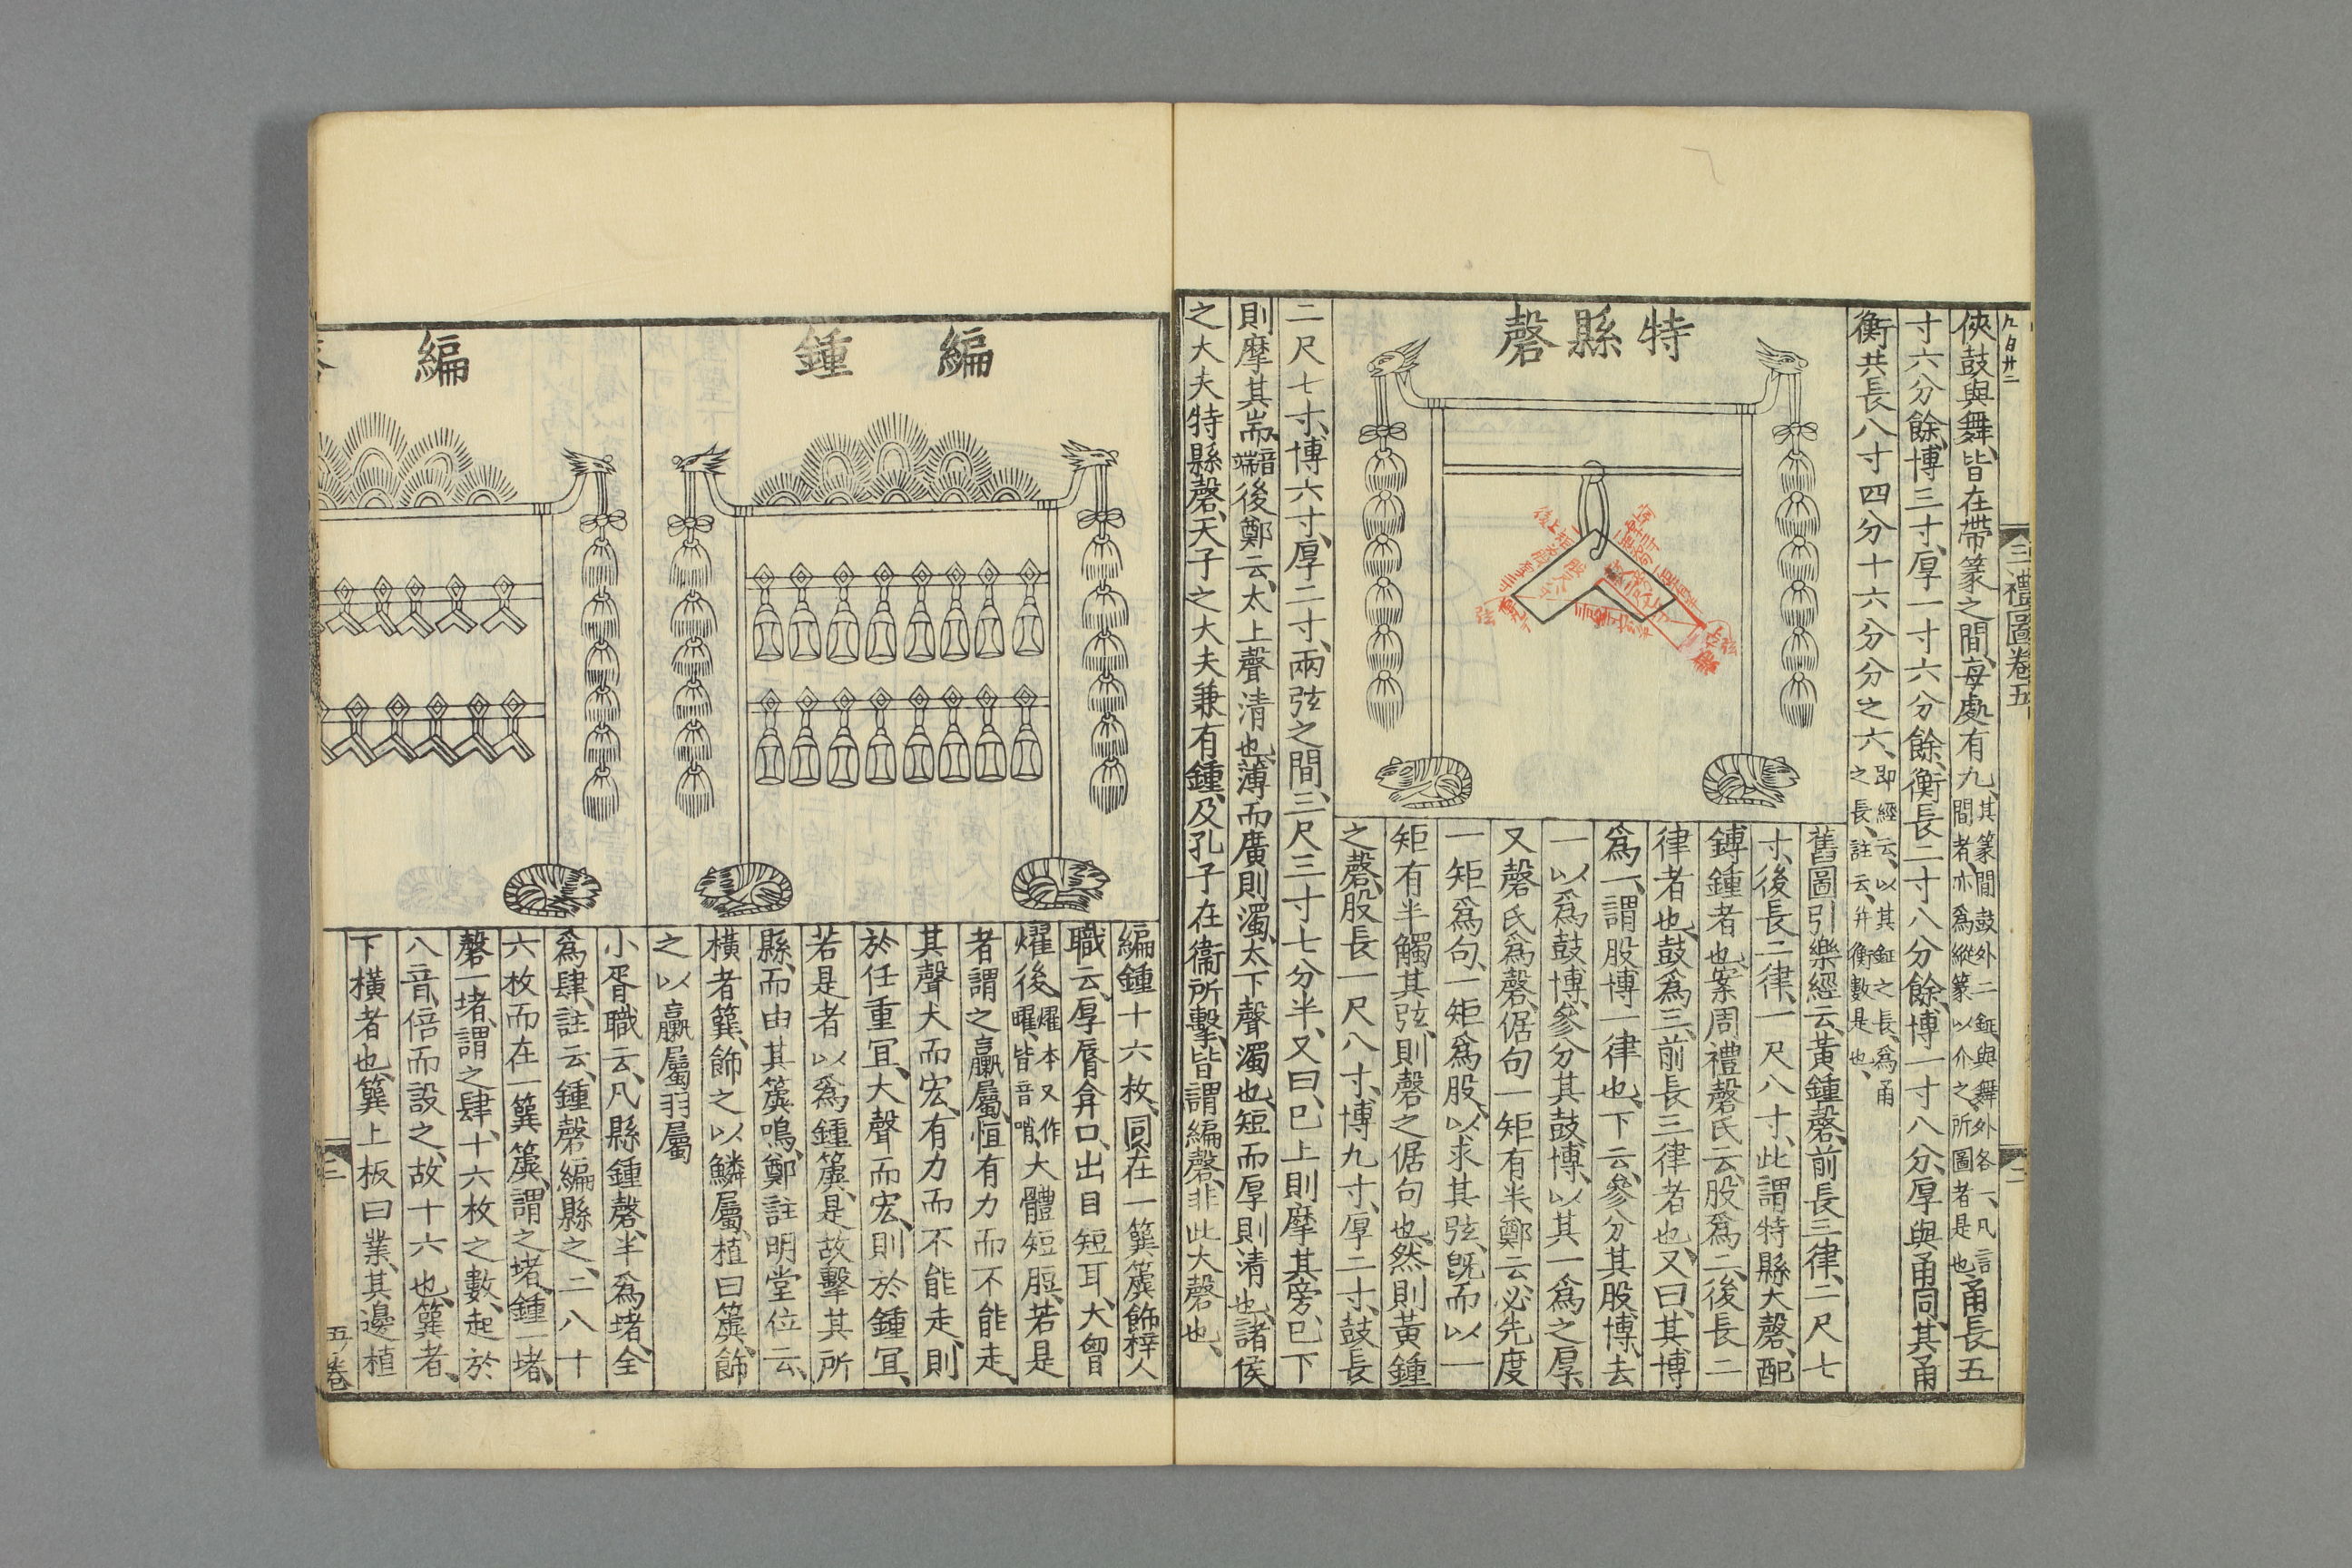 九百廿二
三禮圖卷五
二
俠鼓與舞、皆在帶篆之間、每處有九、其篆間鼓外二鉦與舞外各一、凡言間者、亦爲縱篆、以介之、所圖者是也、甬長五
寸六分餘、博三寸、厚一寸六分餘、衡長二寸八分餘、博一寸八分、厚與甬同、其甬
衡、共長八寸四分十六分分之六、即經云、以其鉦之長、爲甬之長、註云、并衡數是也、
特縣磬
舊圖引樂經云、黃鍾磬、前長三律、二尺七
寸、後長二律、一尺八寸、此謂特縣大磬、配
鎛鍾者也、案周禮磬氏云、股爲二、後長二
律者也、鼓爲三、前長三律者也、又曰、其博
爲一、謂股博一律也、下云、參分其股博、去
一以爲鼓博、參分其鼓博、以其一爲之厚、
又磬氏爲磬、倨句一矩有半、鄭云必先度
一矩爲句、一矩爲股、以求其弦、旣而以一
矩有半觸其弦、則磬之倨句也、然則黃鍾
之磬、股長一尺八寸、博九寸、厚二寸、鼓長
二尺七寸、博六寸、厚二寸、兩弦之間、三尺三寸七分半、又曰、巳上則摩其旁、巳下
則摩其耑、音端後鄭云、太上聲清也、薄而廣則濁、太下聲濁也、短而厚則清也、諸侯
之大夫特縣磬、天子之大夫兼有鍾、及孔子在衞所擊、皆謂編磬、非此大磬也、
編鍾
編鍾十六枚、同在一簨簴、飾梓人
職云、厚脣弇口、出目短耳、大胷
燿後、燿本又作曜、皆音哨、大體短脰、若是
者謂之臝屬、恒有力而不能走、
其聲大而宏、有力而不能走、則
於任重宜、大聲而宏、則於鍾宜、
若是者以爲鍾簴、是故擊其所
縣、而由其簴鳴、鄭註明堂位云、
橫者簨、飾之以鱗屬、植曰簴、飾
之以臝屬羽屬
編
小胥職云、凡縣鍾磬、半爲堵、全
爲肆、註云、鍾磬編縣之、二八十
六枚而在一簨簴、謂之堵、鍾一堵、
磬一堵、謂之肆、十六枚之數、起於
八音、倍而設之、故十六也、簨者、
下橫者也、簨上板曰業、其邊植
三
五卷